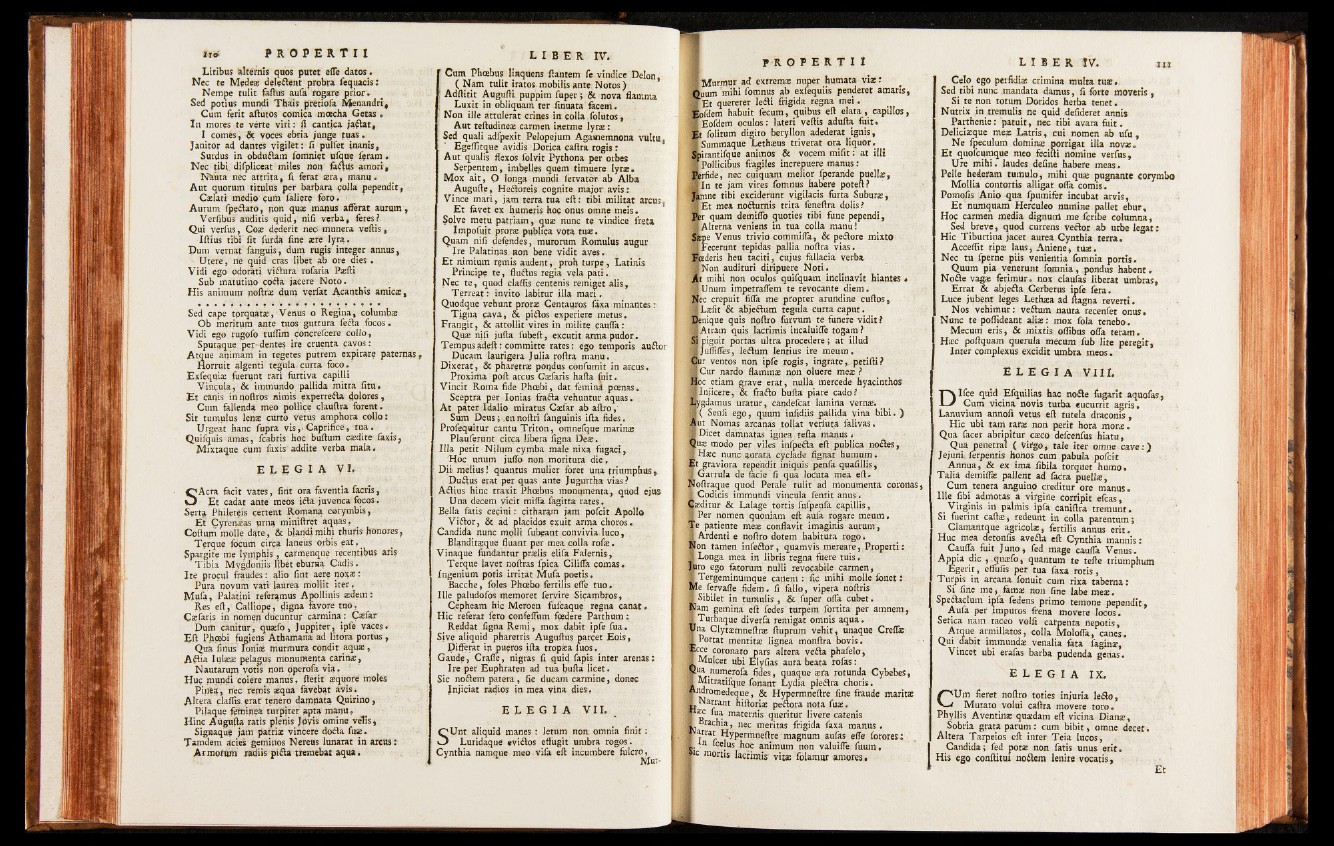 110 PROPERTII
Litibus alternis quos putet esse datos.
Nec te Medeæ delectent probra sequacis:
Nempe tulit fastus ausa rogare prior.
Sed potius mundi Thais pretiosa Menandri,
Cum ferit astutos comica mœcha Getas.
In mores te verte viri: si cantica jactat,
I comes, & voces ebria junge tuas.
Janitor ad dantes vigilet: si pulset inanis,
Surdus in obductam somniet usque seram.
Nec tibi displiceat miles non factus amori,
Nauta nec attrita, si ferat æra, manu.
Aut quorum titulus per barbara colla pependit,
Cælati medio cum saliere foro.
Aurum spectato, non quæ manus afferat aurum,
Versibus auditis quid, nisi verba, feres?
Qui versus, Coæ dederit nec munera vestis,
Istius tibi sit surda sine ære lyra.
Dum vernat sanguis, dum rugis integer annus,
Utere, ne quid cras libet ab ore dies.
Vidi ego odorati victura rosaria Pæsti
Sub matutino cocta jacere Noto.
His animum nostræ dum versat Acanthis amicæ,
. . . . . . . . . . . . . . . . . . . .
Sed cape torquatæ, Venus o Regina, columbæ
Ob meritum ante tuos guttura secta focos.
Vidi ego rugoso tussim concrescere collo,
Sputaque per dentes ire cruenta cavos:
Atque animam in tegetes putrem expirare paternas,
Horruit algenti tegula curta foco.
Exsequiæ fuerunt rari furtiva capilli
Vincula, & immundo pallida mitra situ.
Et canis in nostros nimis experrecta dolores,
Cum fallenda meo pollice claustra forent.
Sit tumulus lenæ curto vetus amphora collo:
Urgeat hanc supra vis, Caprifice, tua.
Quisquis amas, scabris hoc bustum cædite saxis,
Mixtaque cum saxis addite verba mala.
ELEGIA VI.
SAcra facit vates, sint ora faventia sacris,
Et cadat ante meos icta juvenca focos.
Serta Philereis certent Romana corymbis,
Et Cyrenæas urna ministret aquas.
Costum molle date, & blandi mihi thuris honores,
Terque focum circa laneus orbis eat.
Spargite me lymphis, carmenque recentibus aris
Tibia Mygdoniis libet eburna Cadis.
Ite procul fraudes: alio sint aere noxæ:
Pura novum vati laurea mollit iter.
Musa, Palatini referamus Apollinis ædem:
Res est, Calliope, digna favore tuo.
Cæsaris in nomen ducuntur carmina: Cæsar
Dum canitur, quæso, Juppiter, ipse vaces.
Est Phœbi fugiens Athamana ad litora portus,
Qua sinus Ioniæ murmura condit aquæ,
Actia Iuleæ pelagus monumenta carinæ,
Nautarum votis non operosa via.
Huc mundi coiere manus, stetit æquore moles
Pinea, nec remis æqua favebat avis.
Altera classis erat tenero damnata Quirino,
Pilaque femineâ turpiter apta manu.
Hinc Augusta ratis plenis Jovis omine velis,
Signaque jam patriæ vincere docta suæ.
Tamdem acies geminos Nereus lunarat in arcus:
Armorum radiis picta tremebat aqua.
LIBER IV.
Cum Phœbus linquens stantem se vindice Delon,
( Nam tulit iratos mobilis ante Notos)
Adstitit Augusti puppim super; & nova flamma
Luxit in obliquam ter sinuata facem.
Non ille attulerat crines in colla solutos,
Aut testudineæ carmen inerme lyræ:
Sed quali adspexit Pelopejum Agamemnona vultu,
Egessitque avidis Dorica castra rogis:
Aut qualis flexos solvit Pythona per orbes
Serpentem, imbelles quem timuere lyræ.
Mox ait, O longa mundi servator ab Alba
Auguste, Hectoreis cognite major avis:
Vince mari, jam terra tua est: tibi militat arcus,
Et favet ex humeris hoc onus omne meis.
Solve metu patriam, quæ nunc te vindice freta
Imposuit proræ publica vota tuæ.
Quam nisi defendes, murorum Romulus augur
Ire Palatinas non bene vidit aves.
Et nimium remis audent, proh turpe, Latinis
Principe te, fluctus regia vela pati.
Nec te, quod classis centenis remiget alis,
Terreat: invito labitur illa mari.
Quodque vehunt proræ Centauros saxa minantes:
Tigna cava, & pictos experiere metus.
Frangit, & attollit vires in milite caussa:
Quæ nisi justa subest, excutit arma pudor.
Tempus adest: committe rates: ego temporis auctor
Ducam laurigera Julia rostra manu.
Dixerat, & pharetræ pondus consumit in arcus.
Proxima post arcus Cæsaris hasta fuit.
Vincit Roma fide Phœbi, dat femina pœnas.
Sceptra per Ionias fracta vehuntur aquas.
At pater Idalio miratus Cæsar ab astro,
Sum Deus; en nostri sanguinis ista fides.
Prosequitur cantu Triton, omnesque marinæ
Plauserunt circa libera signa Deæ.
Illa petit Nilum cymba male nixa fugaci,
Hoc unum jusso non moritura die.
Dii melius! quantus mulier foret una triumphus,
Ductus erat per quas ante Jugurtha vias?
Actius hinc traxit Phœbus monumenta, quod ejus
Una decem vicit missa sagitta rates.
Bella satis cecini: citharam jam poscit Apollo
Victor, & ad placidos exuit arma choros.
Candida nunc molli subeant convivia luco,
Blanditæque fluant per mea colla rosæ.
Vinaque fundantur prælis elisa Falernis,
Terque lavet nostras spica Cilissa comas.
Ingenium potis irritat Musa poetis.
Bacche, soles Phœbo fertilis esse tuo.
Ille paludosos memoret servire Sicambros,
Cepheam hic Meroen fuscaque regna canat.
Hic referat sero confessum fœdere Parthum:
Reddat signa Remi, mox dabit ipse sua.
Sive aliquid pharetris Augustus parcet Eois,
Differat in pueros ista tropæa suos.
Gaude, Crasse, nigras si quid sapis inter arenas:
Ire per Euphraten ad tua busta licet.
Sic noctem patera, sic ducam carmine, donec
Injiciat radios in mea vina dies.
ELEGIA VII.
SUnt aliquid manes: letum non omnia finit:
Luridaque evictos effugit umbra rogos.
Cynthia namque meo visa est incumbere fulcro,
Mur-
PROPERTII
Murmur ad extremæ nuper humata viæ:
Quum mihi somnus ab exsequiis penderet amaris,
Et quererer lecti frigida regna mei.
Eosdem habuit secum, quibus est elata, capillos,
Eosdem oculos: lateri vestis adusta fuit.
Et solitum digito beryllon adederat ignis,
Summaque Lethæus triverat ora liquor.
Spirantisque animos & vocem misit: at illi
Pollicibus fragiles increpuere manus:
Perfide, nec cuiquam melior sperande puellæ,
In te jam vires somnus habere potest?
Jamne tibi exciderunt vigilacis furta Suburæ,
Et mea nocturnis trita fenestra dolis?
Per quam demisso quoties tibi fune pependi,
Alterna veniens in tua colla manu!
Sæpe Venus trivio commissa, & pectore mixto
Fecerunt tepidas pallia nostra vias.
Fœderis heu taciti, cujus fallacia verba
Non audituri diripuere Noti.
At mihi non oculos quisquam inclinavit hiantes.
Unum impetrassem te revocante diem.
Nec crepuit fissa me propter arundine custos,
Læsit & abjectum tegula curta caput.
Denique quis nostro furvum te funere vidit?
Atram quis lacrimis incaluisse togam?
Si piguit portas ultra procedere; at illud
Jussisses, lectum lentius ire meum.
Cur ventos non ipse rogis, ingrate, petisti?
Cur nardo flammæ non oluere meæ?
Hoc etiam grave erat, nulla mercede hyacinthos
Injicere, & fracto busta piare cado?
Lygdamus uratur, candescat lamina vernæ.
( Sensi ego, quum insidiis pallida vina bibi.)
Aut Nomas arcanas tollat versuta salivas.
Dicet damnatas ignea testa manus.
Quæ modo per viles inspecta est publica noctes,
Hæc nunc aurata cyclade signat humum.
Et graviora rependit iniquis pensa quasillis,
Garrula de facie si qua locuta mea est.
Nostraque quod Petale tulit ad monumenta coronas,
Codicis immundi vincula sentit anus.
Cæditur & Lalage tortis suspensa capillis,
Per nomen quoniam est ausa rogare meum.
Te patiente meæ conflavit imaginis aurum,
Ardenti e nostro dotem habitura rogo.
Non tamen insector, quamvis mereare, Properti:
Longa mea in libris regna fuere tuis.
Juro ego fatorum nulli revocabile carmen,
Tergeminumque canem: sic mihi molle sonet:
Me servasse fidem. si fallo, vipera nostris
Sibilet in tumulis, & super ossa cubet.
Nam gemina est sedes turpem sortita per amnem,
Turbaque diversa remigat omnis aqua.
Una Clytæmnestræ stuprum vehit, unaque Cressæ
Portat mentitæ lignea monstra bovis.
Ecce coronato pars altera vecta phaselo,
Mulcet ubi Elysias aura beata rosas:
Qua numerosa fides, quaque æra rotunda Cybebes,
Mitratisque sonant Lydia plectra choris.
Andromedeque, & Hypermnestre sine fraude maritæ
Narrant historiæ pectora nota suæ.
Hæc sua maternis queritur livere catenis
Brachia, nec meritas frigida saxa manus.
Narrat Hypermnestre magnum ausas esse sorores:
In scelus hoc animum non valuisse suum.
Sic mortis lacrimis vitæ solamur amores,
LIBER IV. 111
Celo ego perfidiæ crimina multa tuæ.
Sed tibi nunc mandata damus, si forte moveris,
Si te non totum Doridos herba tenet.
Nutrix in tremulis ne quid desideret annis
Parthenie: patuit, nec tibi avara fuit.
Deliciæque meæ Latris, cui nomen ab usu,
Ne speculum dominæ porrigat illa novæ.
Et quoscumque meo fecisti nomine versus,
Ure mihi. laudes desine habere meas.
Pelle hederam tumulo, mihi quæ pugnante corymbo
Mollia contortis alligat ossa comis.
Pomosis Anio qua spumifer incubat arvis,
Et numquam Herculeo numine pallet ebur,
Hoc carmen media dignum me scribe columna,
Sed breve, quod currens vector ab urbe legat:
Hic Tiburtina jacet aurea Cynthia terra.
Accessit ripæ laus, Aniene, tuæ.
Nec tu sperne piis venientia somnia portis.
Quum pia venerunt somnia, pondus habent.
Nocte vagæ ferimur. nox clausas liberat umbras,
Errat & abjecta Cerberus ipse sera.
Luce jubent leges Lethæa ad stagna reverti.
Nos vehimur: vectum nauta recenset onus.
Nunc te possideant aliæ: mox sola tenebo.
Mecum eris, & mixtis ossibus ossa teram.
Hæc postquam querula mecum sub lite peregit,
Inter complexus excidit umbra meos.
ELEGIA VIII.
DIsce quid Esquilias hac nocte fugarit aquosas,
Cum vicina novis turba cucurrit agris.
Lanuvium annosi vetus est tutela draconis,
Hic ubi tam raræ non perit hora moræ.
Qua sacer abripitur cæco descensus hiatu,
Qua penetral ( virgo, tale iter omne cave:)
Jejuni serpentis honos cum pabula poscit
Annua, & ex ima sibila torquet humo.
Talia demissæ pallent ad sacra puellæ,
Cum tenera anguino creditur ore manus.
Ille sibi admotas a virgine corripit escas,
Virginis in palmis ipsa canistra tremunt.
Si fuerint castæ, redeunt in colla parentum;
Clamantque agricolæ, fertilis annus erit.
Huc mea detonsis avecta est Cynthia mannis:
Caussa fuit Juno, sed mage caussa Venus.
Appia dic, quæso, quantum te teste triumphum
Egerit, effusis per tua saxa rotis,
Turpis in arcana sonuit cum rixa taberna:
Si sine me, famæ non sine labe meæ.
Spectaclum ipsa sedens primo temone pependit,
Ausa per impuros frena movere locos.
Serica nam taceo volsi carpenta nepotis,
Atque armillatos, colla Molossa, canes.
Qui dabit immundæ venalia fata saginæ,
Vincet ubi erasas barba pudenda genas.
ELEGIA IX.
CUm fieret nostro toties injuria lecto,
Mutato volui castra movere toro.
Phyllis Aventinæ quædam est vicina Dianæ,
Sobria grata parum: cum bibit, omne decet.
Altera Tarpeios est inter Teia lucos,
Candida; sed potæ non satis unus erit.
His ego constitui noctem lenire vocatis,
Et